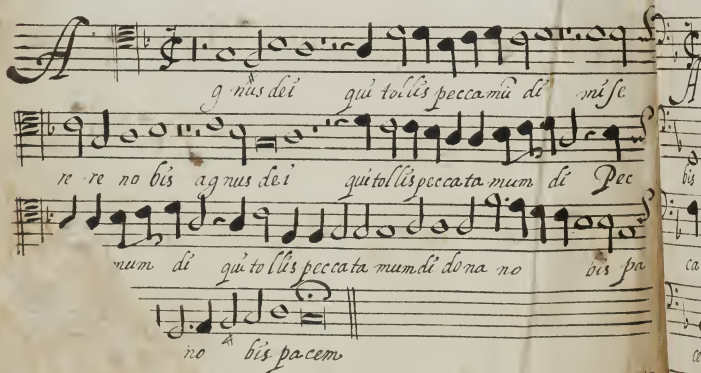 A gnus dei qui tollis pecca mū di mise
re re no bis agnus dei qui tollis peccata mum di Pec
mum di qui tollis peccata mumdi dona no bis pa
no bis pacem
A
bis
ca
ce